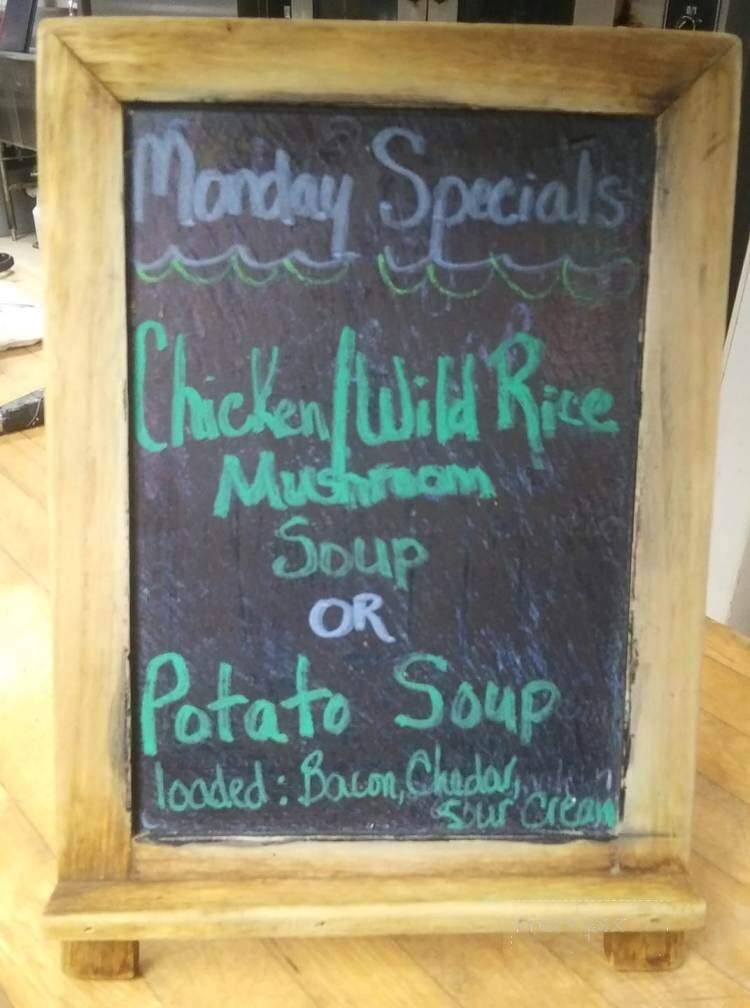 Monday Specials
Chicken/Wild Rice
Mushroom
Soup
OR
Potato Soup
loaded: Bacon, Chedar,
Sour Cream